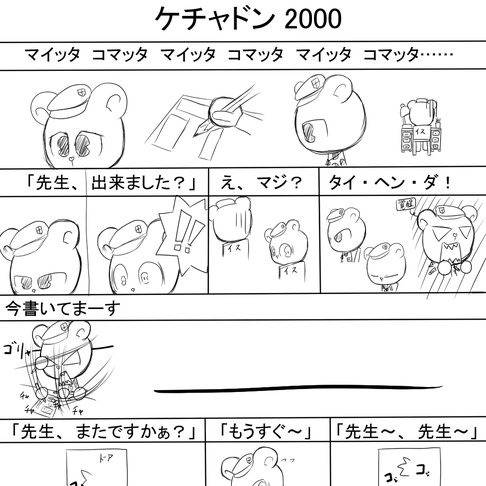 ケチャドン 2000
マイッタ コマッタ マイッタ コマッタ マイッタ コマッタ……
イス
「先生、出来ました？」
え、マジ？
タイ・ヘン・ダ！
!!
イス
イス
今書いてまーす
ゴリャ
チャ
チャ
チャ
「先生、またですかぁ？」
「もうすぐ～」
「先生～、先生～」
ドア
コﾞ
コﾞ
コﾞ